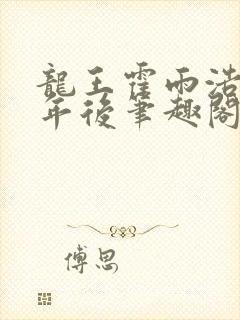 龍王霍雨浩
年後筆趣閣
傅思